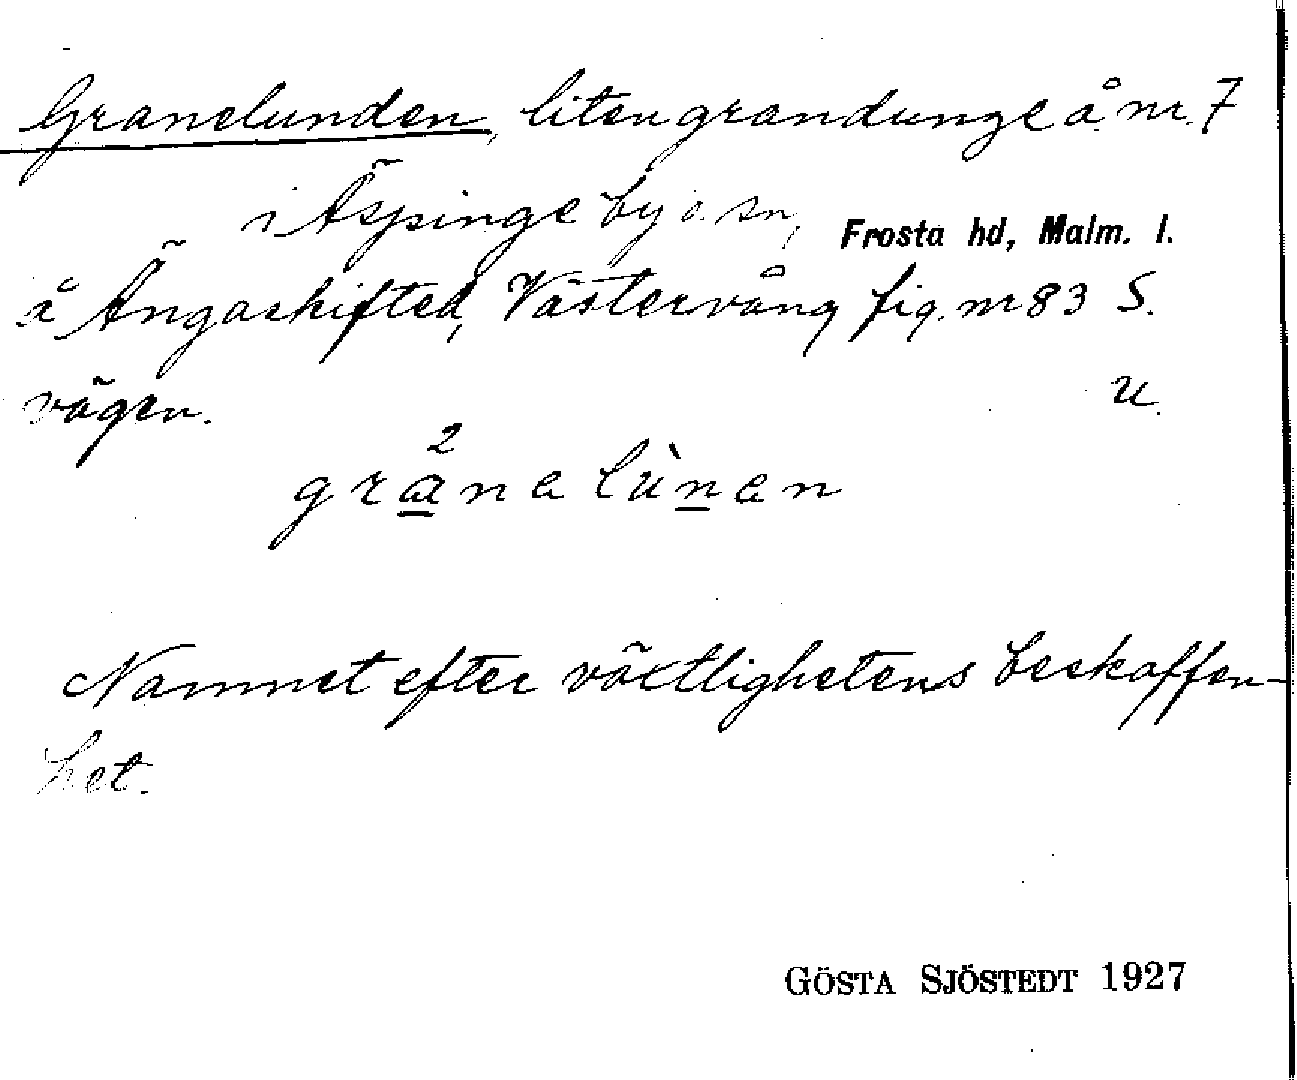 Granelunden, liten grandunge å nr. 7
i Äspinge by o. sn, Frosta hd, Malm. l.
å Ängaskifted, Västervång fig. nr 83 S.
vägen. U.
2
granelùnen
Namnet efter växtlighetens beskaffen-
het.
GÖSTA SJÖSTEDT 1927